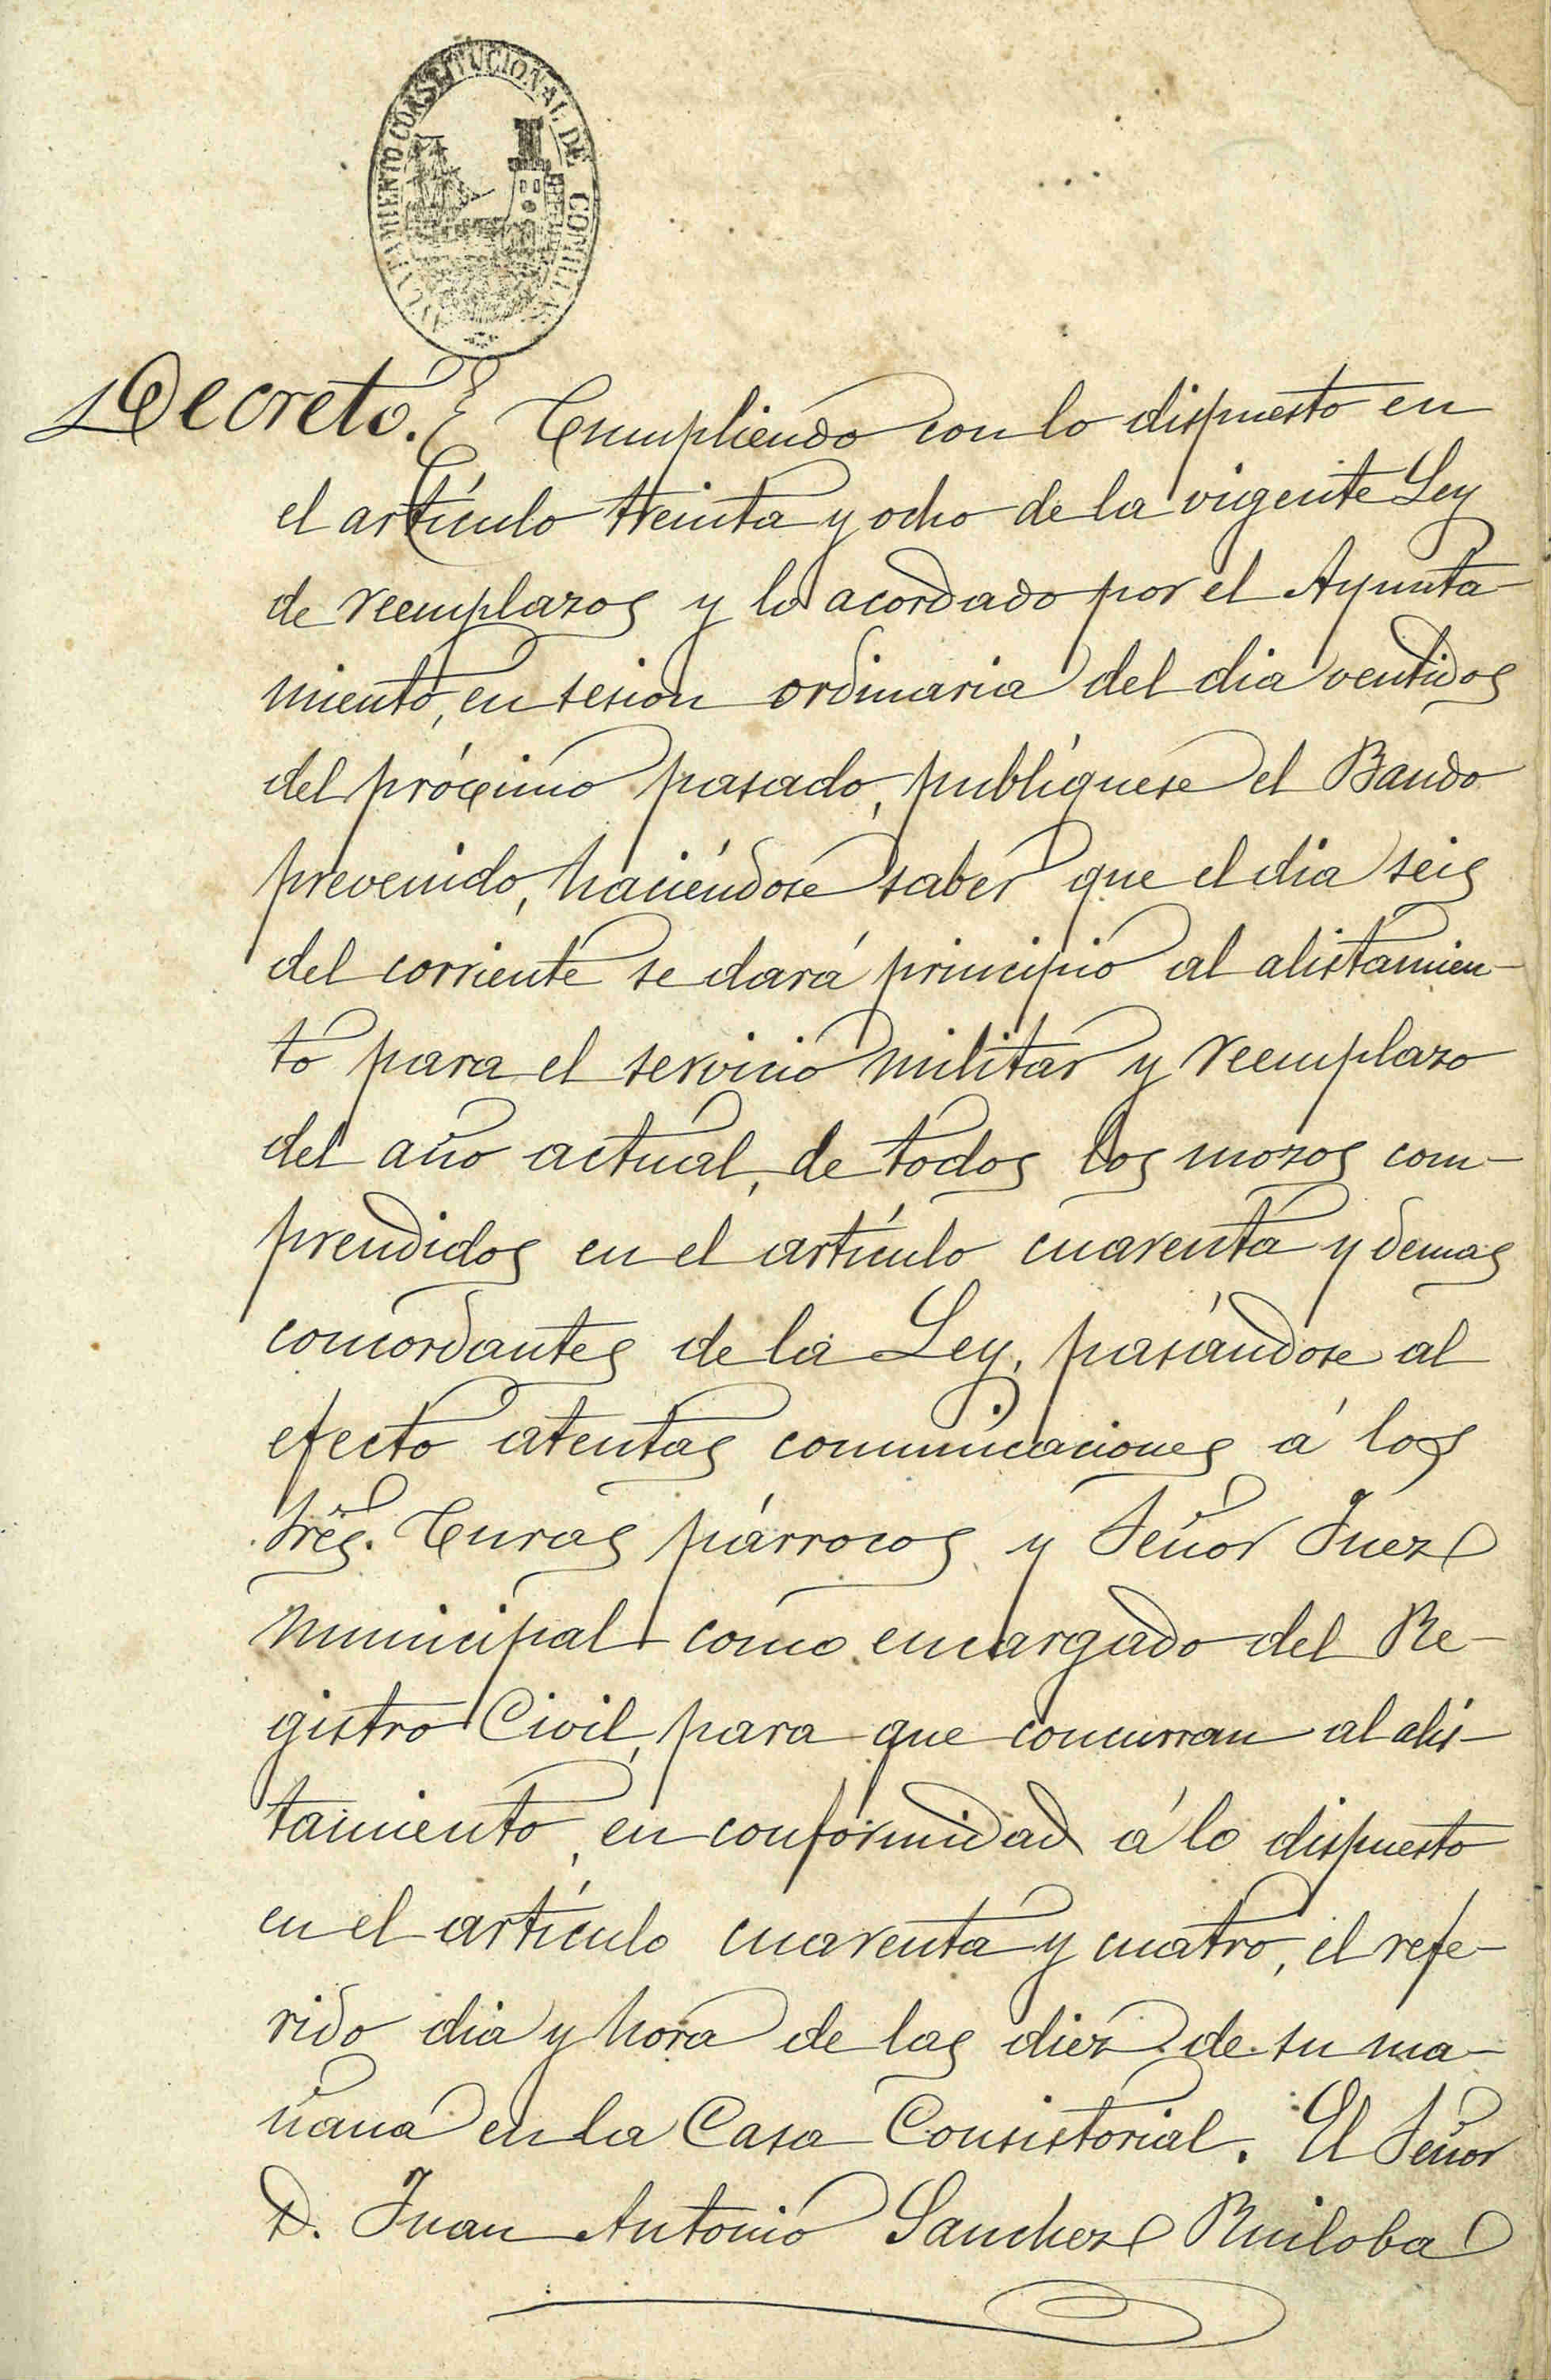 AYUNTAMIENTO CONSTITUCIONAL DE COMILLAS
Decreto. Cumpliendo con lo dispuesto en
el artículo treinta y ocho de la vigente Ley
de reemplazos y lo acordado por el Ayunta-
miento, en sesion ordinaria del dia ventidos
del próximo pasado, publíquese el Bando
prevenido, haciéndose saber que el dia seis
del corriente se dará principio al alistamien-
to para el servicio militar y reemplazo
del año actual, de todos los mozos com-
prendidos en el artículo cuarenta y demas
concordantes de la Ley, pasándose al
efecto atentas comunicaciones á los
Sres. Curas párrocos y Señor Juez
municipal como encargado del Re-
gistro Civil, para que concurran al alis-
tamiento, en conformidad á lo dispuesto
en el artículo cuarenta y cuatro, el refe-
rido dia y hora de las diez de su ma-
ñana en la Casa Consistorial. El Señor
D. Juan Antonio Sanchez Ruiloba